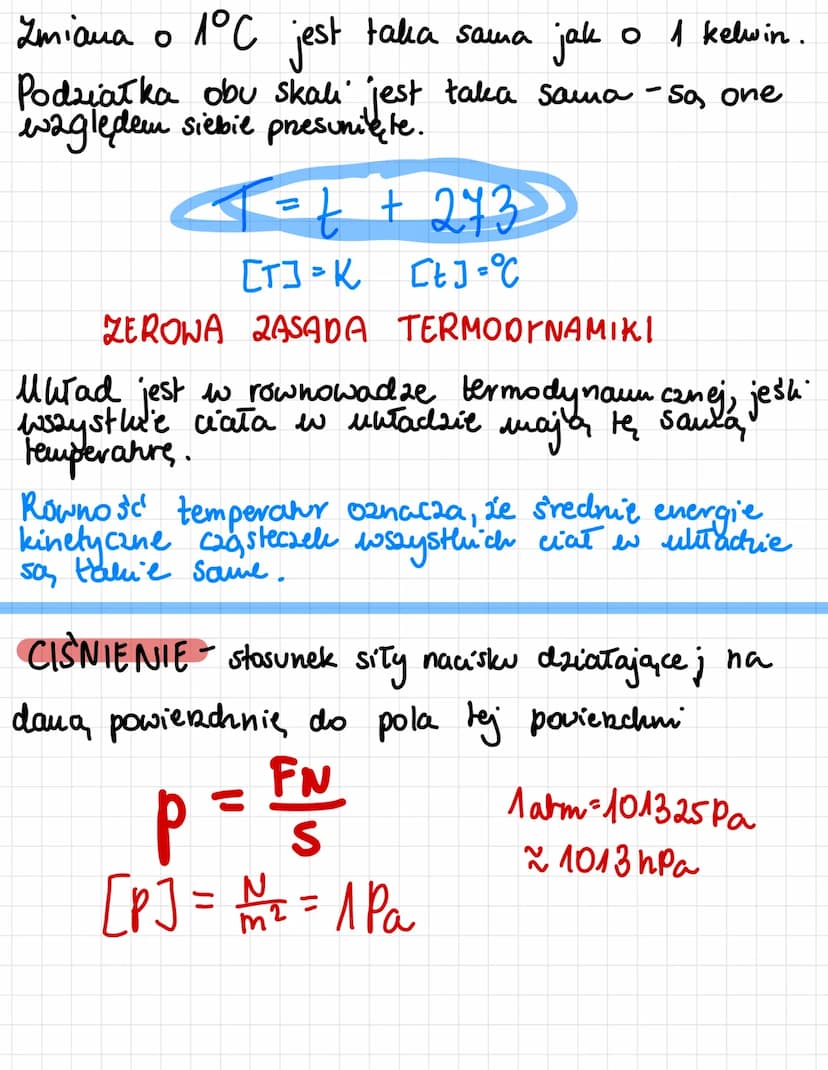 Zmiana o 1°C jest taka sama jak o 1 kelwin.
Podziałka obu skali jest taka sama - są one
względem siebie przesunięte.
T = t + 273
[T] = K [t] = °C
ZEROWA ZASADA TERMODYNAMIKI
Układ jest w równowadze termodynamicznej, jeśli
wszystkie ciała w układzie mają tę samą
temperaturę.
Równość temperatur oznacza, że średnie energie
kinetyczne cząsteczek wszystkich ciał w układzie
są takie same.
CIŚNIENIE - stosunek siły nacisku działającej na
daną powierzchnię do pola tej powierzchni
p = FN/S
1atm = 101325Pa
≈ 1013 hPa
[p] = N/m² = 1Pa